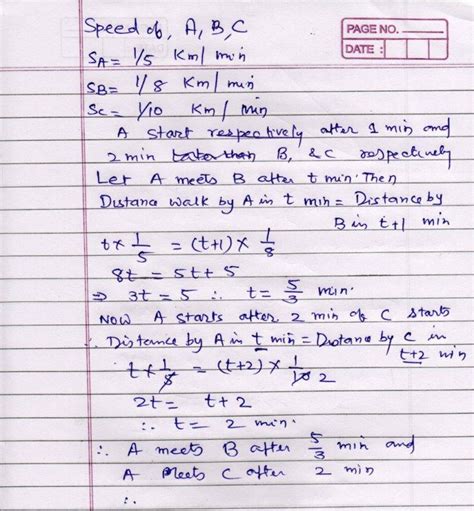 Speed of, A, B, C
PAGE NO.
DATE :
SA = 1/5 Km/ min
SB = 1/8 Km/ min
Sc = 1/10 Km/ min
A start respectively after 1 min and
2 min later than B, & C respectively
Let A meets B after t min. Then
Distana walk by A in t min = Distance by
B in t+1 min
t x 1/5 = (t+1) x 1/8
8t = 5t + 5
⇒ 3t = 5 ∴ t = 5/3 min.
Now A starts after 2 min of C starts
∴ Distance by A in t min = Distance by C in
t+2 min
t x 1/5 = (t+2) x 1/10 2
2t = t+2
∴ t = 2 min.
∴ A meets B after 5/3 min and
A Meets C after 2 min
∴